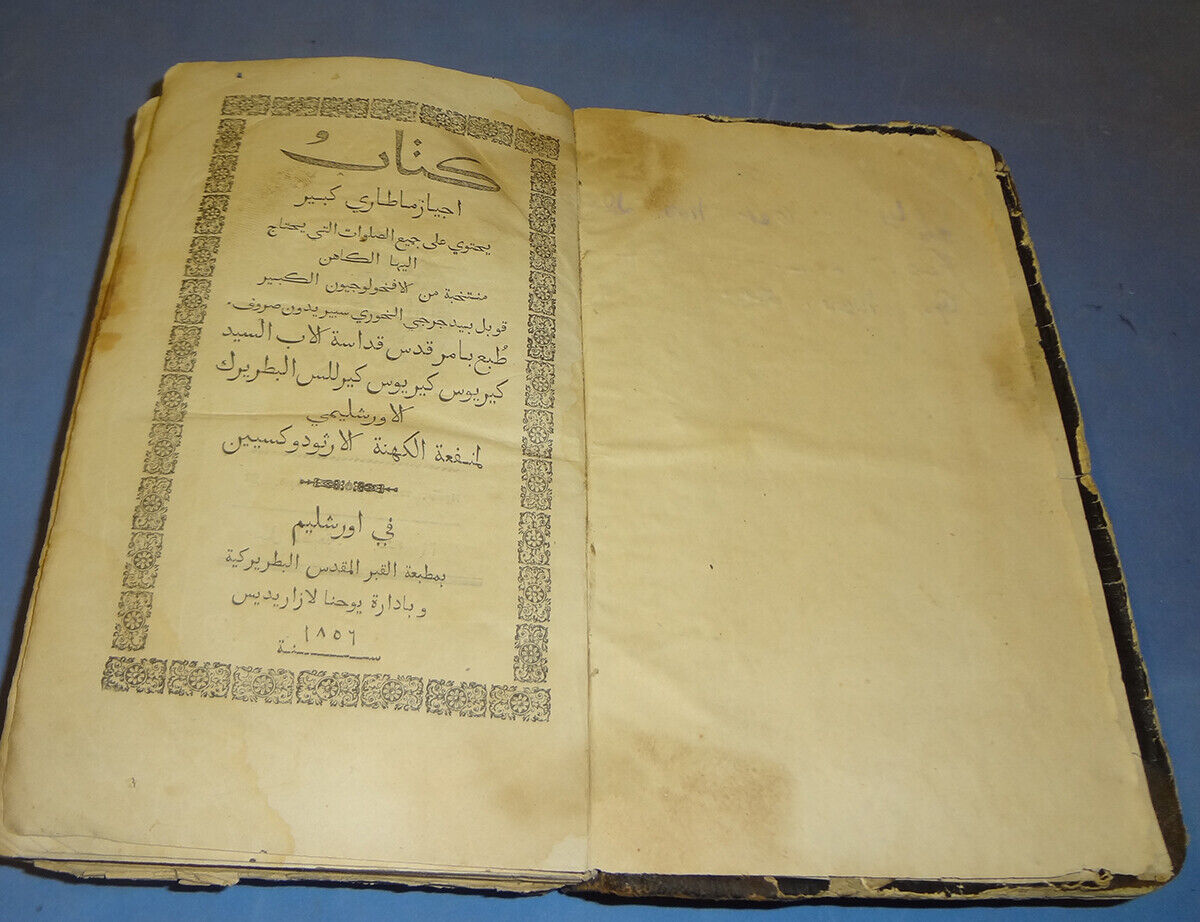 كتاب
اجيازماطاري كبير
يحتوي على جميع الصلوات التي يحتاج
اليها الكاهن
منتخبة من الافخولوجيون الكبير
قوبل بيد جرجي الخوري سبيريدون صروف.
طُبع بامر قدس قداسة الاب السيد
كيريوس كيريوس كيرللس البطريرك
الاورشليمي
لمنفعة الكهنة الارثودوكسيين
في اورشليم
بمطبعة القبر المقدس البطريركية
وبادارة يوحنا لازاريديس
١٨٥٦
سنة